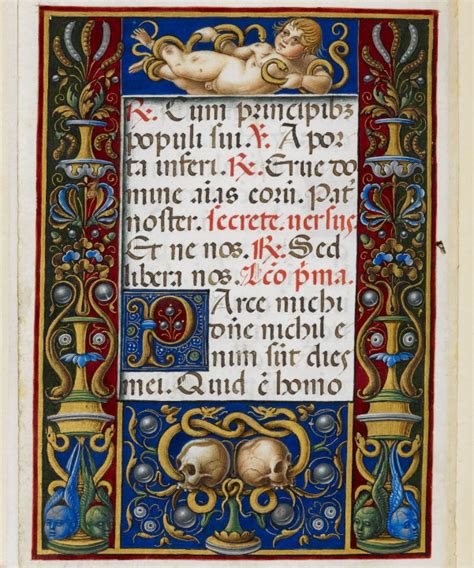 R. Cum principibȝ
populi sui. V. A por
ta inferi. R. Erue do
mine aīas eorū. Pat̄
noster. secrete. versus.
Et ne nos. R. Sed
libera nos. Lc̄o p̄ma.
Parce michi
dn̄e nichil e
nim sūt dies
mei. Quid ē homo